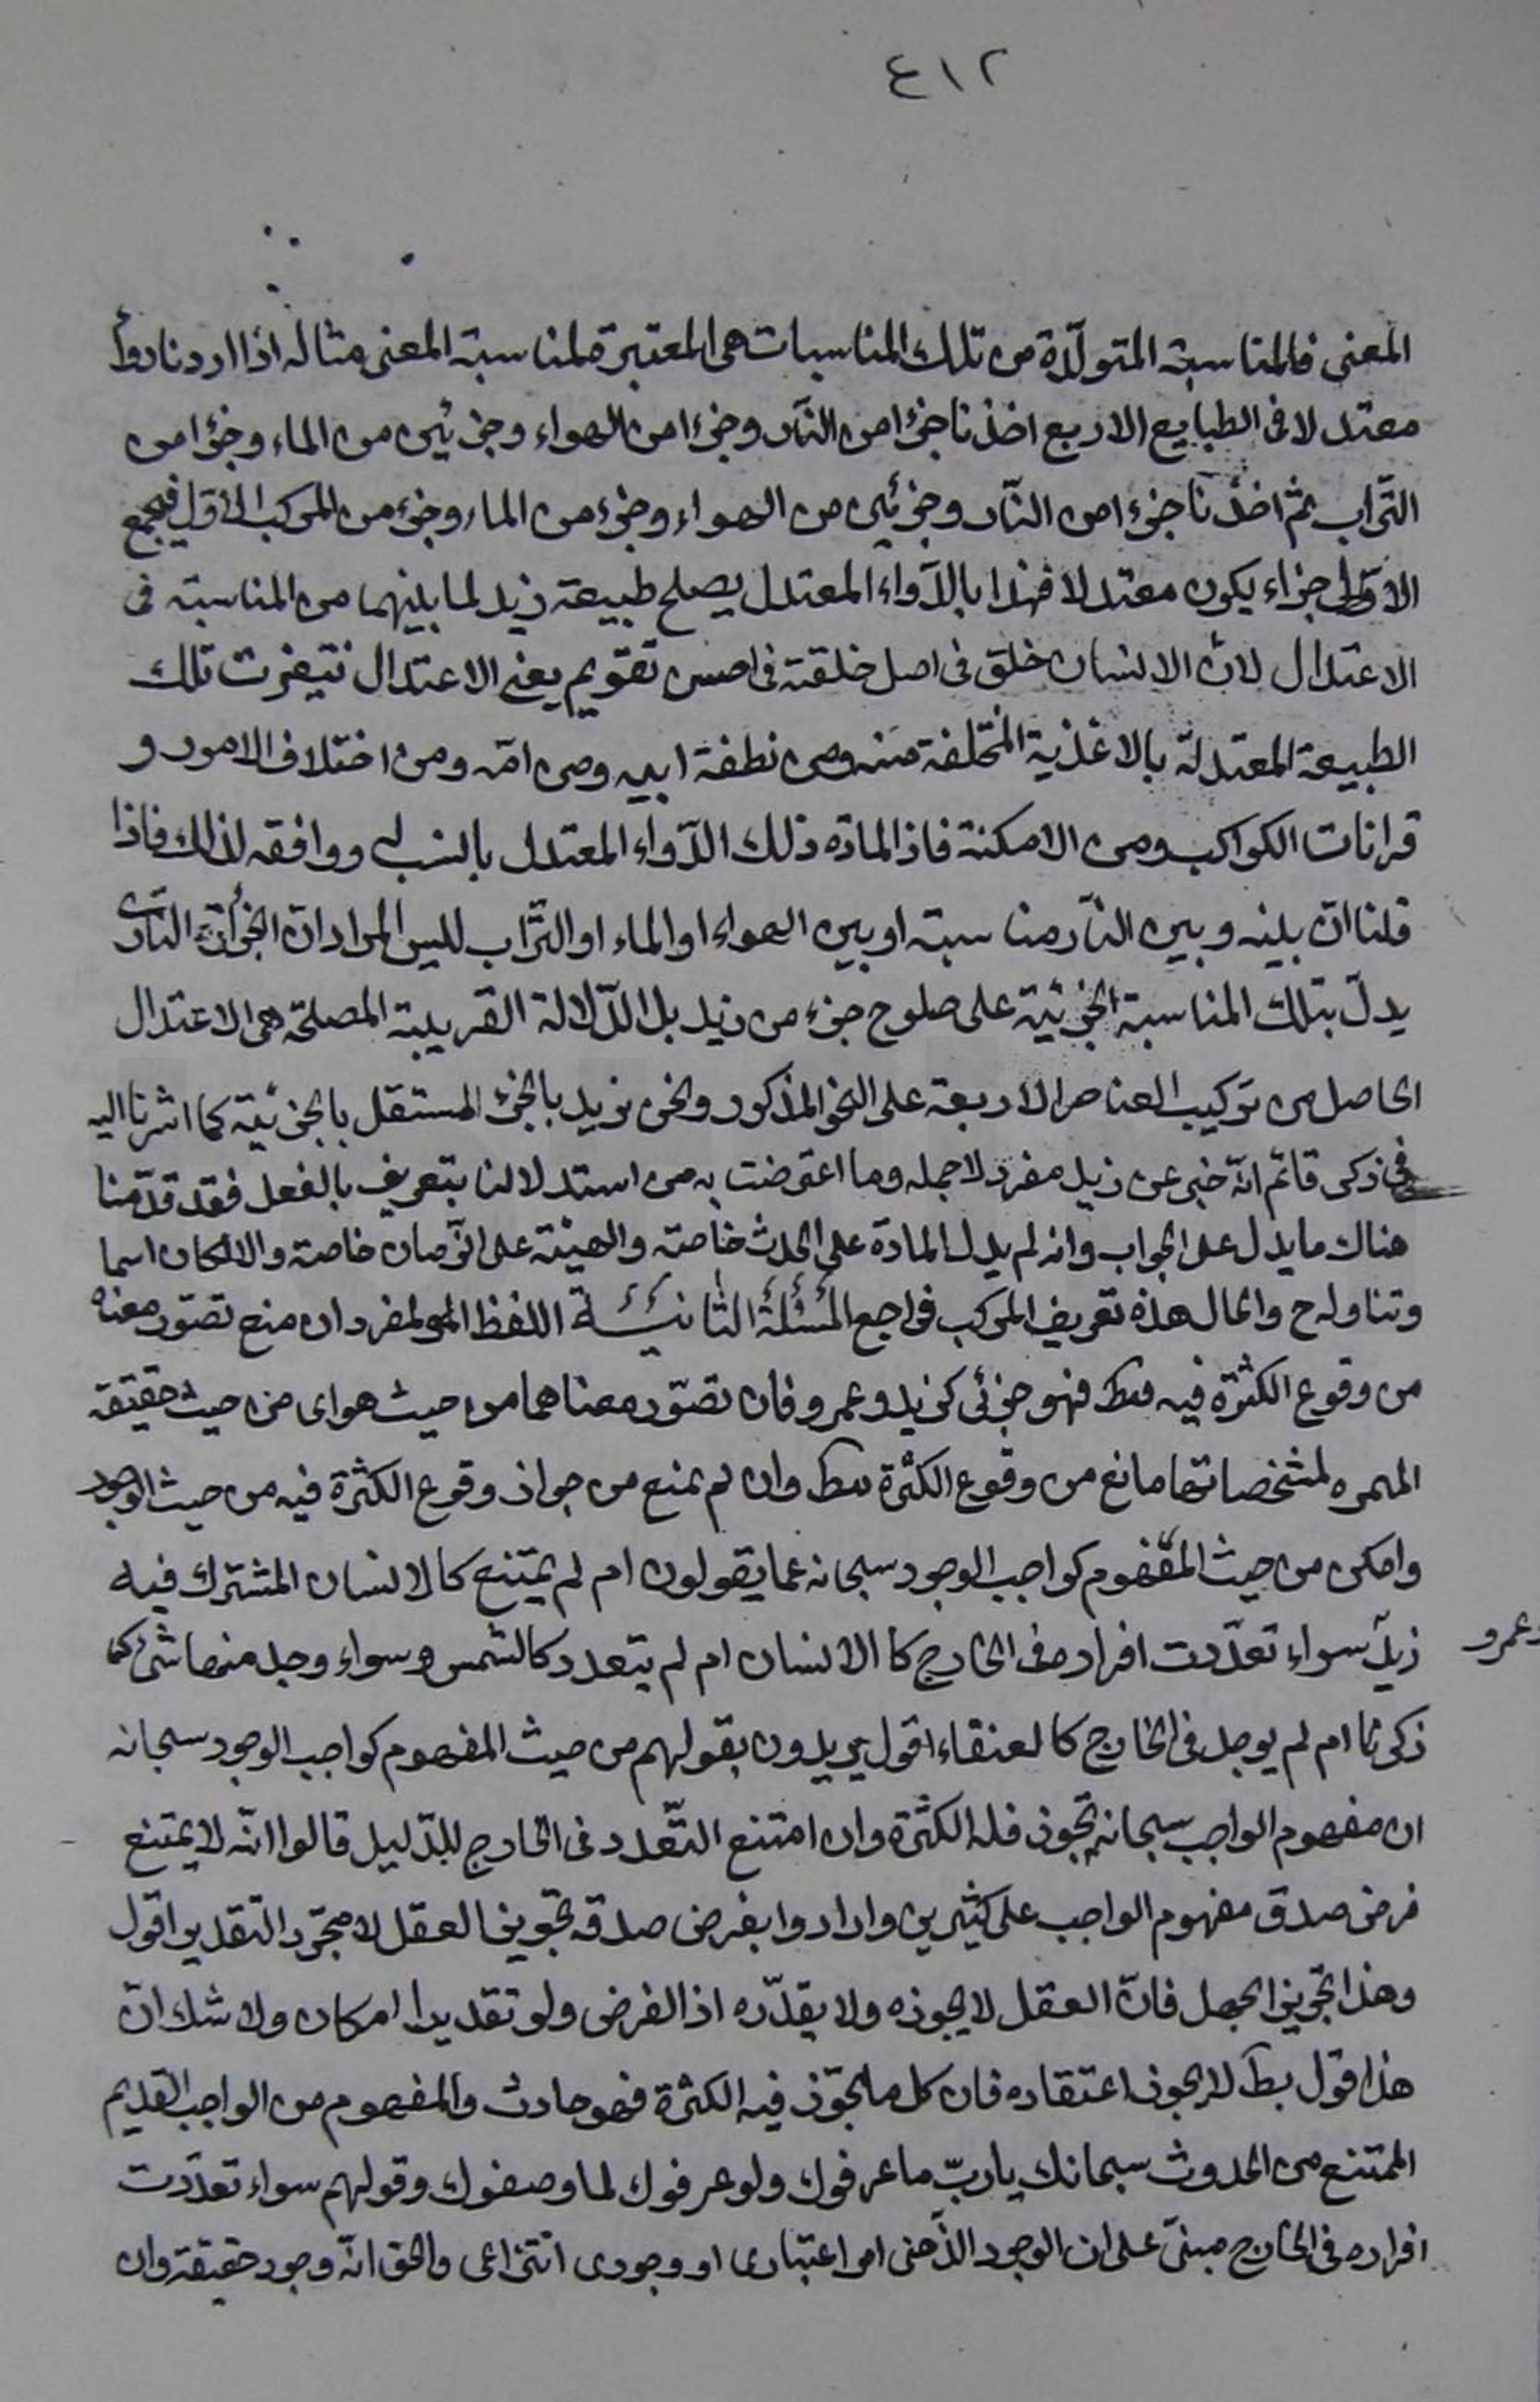 ٤١٢
المعنى فالمناسبة المتولّدة من تلك المناسبات هى المعتبرة لمناسبة المعنى مثاله اذا اردنا دواً
معتدلا فى الطبايع الاربع اخذنا جزءا من النّار وجزءا من الهواء وجزئين من الماء وجزءا من
التّراب ثم اخذنا جزءا من النّار وجزئين من الهواء وجزء من الماء وجزء من المركب الاول فمجمع
الاجزاء يكون معتدلا فهذا بالدّواء المعتدل يصلح طبيعة زيد لما بينهما من المناسبة فى
الاعتدال لانّ الانسان خلق فى اصل خلقته فى احسن تقويم يعنى الاعتدال فتيغرت تلك
الطبيعة المعتدلة بالاغذية المختلفة منه ومن نطفة ابيه ومن امّه ومن اختلاف الامور و
قرانات الكواكب ومن الامكنة فاذا لمادة ذلك الدّواء المعتدل بالنسب ووافقه لذلك فاذا
قلنا انّ بينه وبين النّار مناسبة او بين الهواء او الماء او التّراب لليس المراد ان الجزء النّارى
يدلّ بتلك المناسبة الجزئية على صلوح جزء من زيد بل الدّلالة القريبة المصلحة هى الاعتدال
الحاصل من تركيب العناصر الاربعة على النحو المذكور ونحن نريد بالجزء المستقل بالجزئية كما اشرنا اليه
فى ذكر قائم انّه خبر عن زيد مفرد لا جمله وما اعترضت به من استدلالنا بتعريف بالفعل فقد قدّمنا
هناك ما يدل على الجواب وانه لم يدل المادة على الحدث خاصة والهيئة على الزّمان خاصة والا لكان اسما
وتناوله ح والحال هذه تعريف المركب فراجع المسئلة الثانيـة اللفظ المفرد ان منع تصوّر معناه
من وقوع الكثرة فيه فقط فهو جزئى كزيد وعمرو فان تصوّر معناهما من حيث هو اى من حيث حقيقته
لمشخصاتها مانع من وقوع الكثرة فقط وان لم يمنع من جواز وقوع الكثرة فيه من حيث الوجود
وامكن من حيث المفهوم كواجب الوجود سبحانه عما يقولون ام لم يمتنع كالانسان المشترك فيه
زيد وعمرو سواء تعدّدت افراده فى الخارج كالانسان ام لم يتعدد كالشمس وسواء وجد منها شئ كما
ذكرنا ام لم يوجد فى الخارج كالعنقاء اقول يريدون بقولهم من حيث المفهوم كواجب الوجود سبحانه
ان مفهوم الواجب سبحانه تجوز فله الكثرة وان امتنع التّعدد فى الخارج للدّليل قالوا انّه لا يمتنع
فرض صدق مفهوم الواجب على كثيرين وارادوا بفرض صدقه تجويز العقل لا مجرّد التقدير اقول
وهذا تجويز الجهل فانّ العقل لا يجوزه ولا يقدّره اذ الفرض ولو تقديرا امكان ولا شك انّ
هذا قول بط لا يجوز اعتقاده فان كل ما تجوّز فيه الكثرة فهو حادث والمفهوم من الواجب القديم
الممتنع من الحدوث سبحانك يا ربّ ما عرفوك ولو عرفوك لما وصفوك وقولهم سواء تعدّدت
افراده فى الخارج مبنىّ على ان الوجود الذّهنى امر اعتبارى او وجودى انتزاعى والحق انّه وجود حقيقة وان